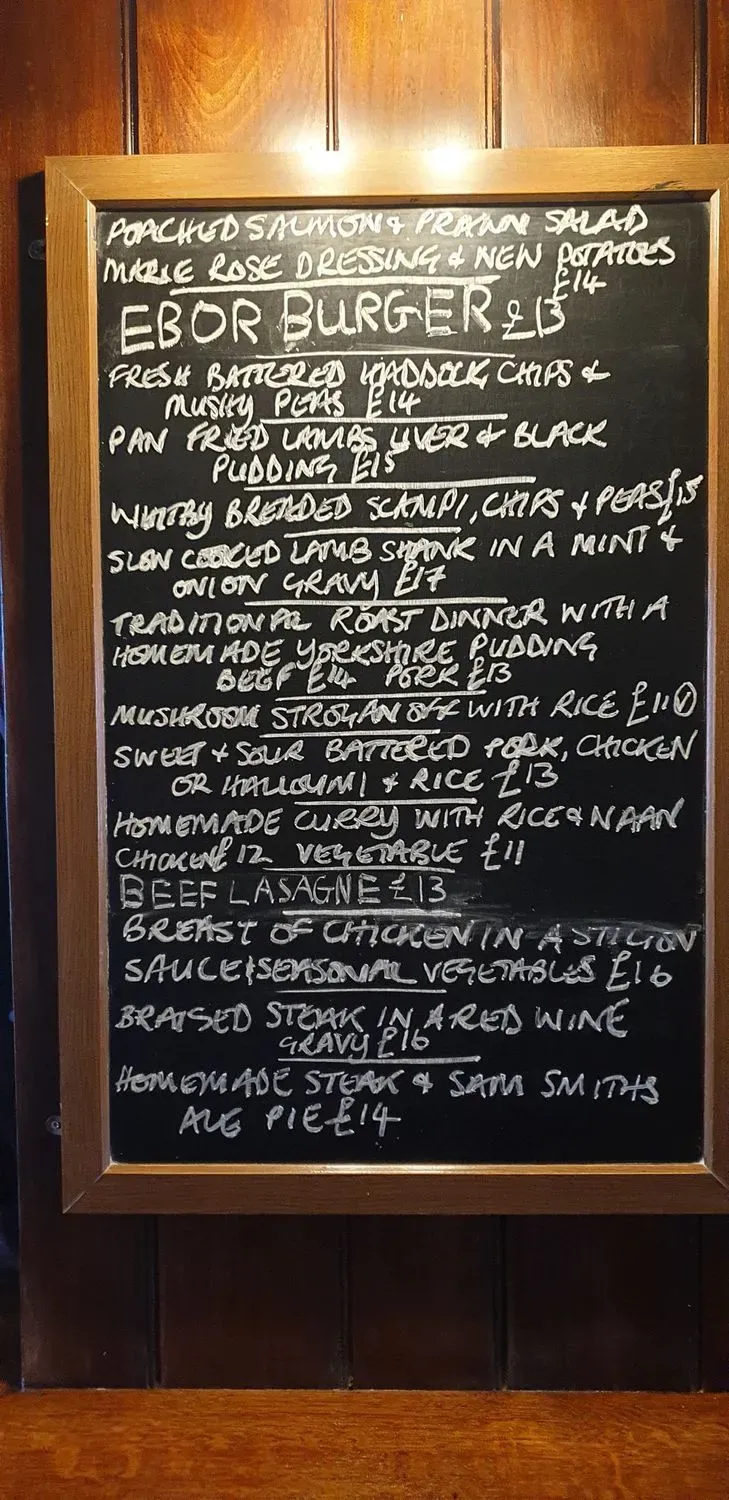 POACHED SALMON & PRAWN SALAD
MARIE ROSE DRESSING & NEW POTATOES
£14
EBOR BURGER £13
FRESH BATTERED HADDOCK CHIPS &
MUSHY PEAS £14
PAN FRIED LAMBS LIVER & BLACK
PUDDING £15
WHITBY BREADED SCAMPI, CHIPS & PEAS £15
SLOW COOKED LAMB SHANK IN A MINT &
ONION GRAVY £17
TRADITIONAL ROAST DINNER WITH A
HOMEMADE YORKSHIRE PUDDING
BEEF £14 PORK £13
MUSHROOM STROGANOFF WITH RICE £11 Ⓥ
SWEET + SOUR BATTERED PORK, CHICKEN
OR HALLOUMI & RICE £13
HOMEMADE CURRY WITH RICE & NAAN
CHICKEN £12 VEGETABLE £11
BEEF LASAGNE £13
BREAST OF CHICKEN IN A STILTON
SAUCE & SEASONAL VEGETABLES £16
BRAISED STEAK IN A RED WINE
GRAVY £16
HOMEMADE STEAK & SAM SMITHS
ALE PIE £14